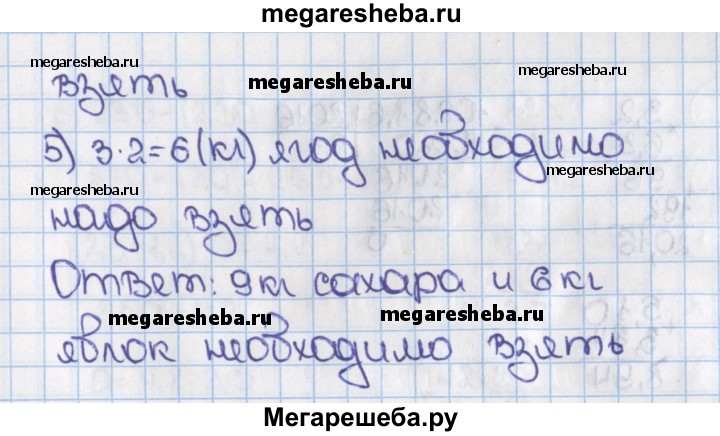 megaresheba.ru
megaresheba.ru megaresheba.ru megaresheba.ru
взять
5) 3·2=6(кг) ягод необходимо
megaresheba.ru megaresheba.ru
надо взять
Ответ: 9кг сахара и 6 кг
megaresheba.ru megaresheba.ru
яблок необходимо взять
Мегарешеба.ру